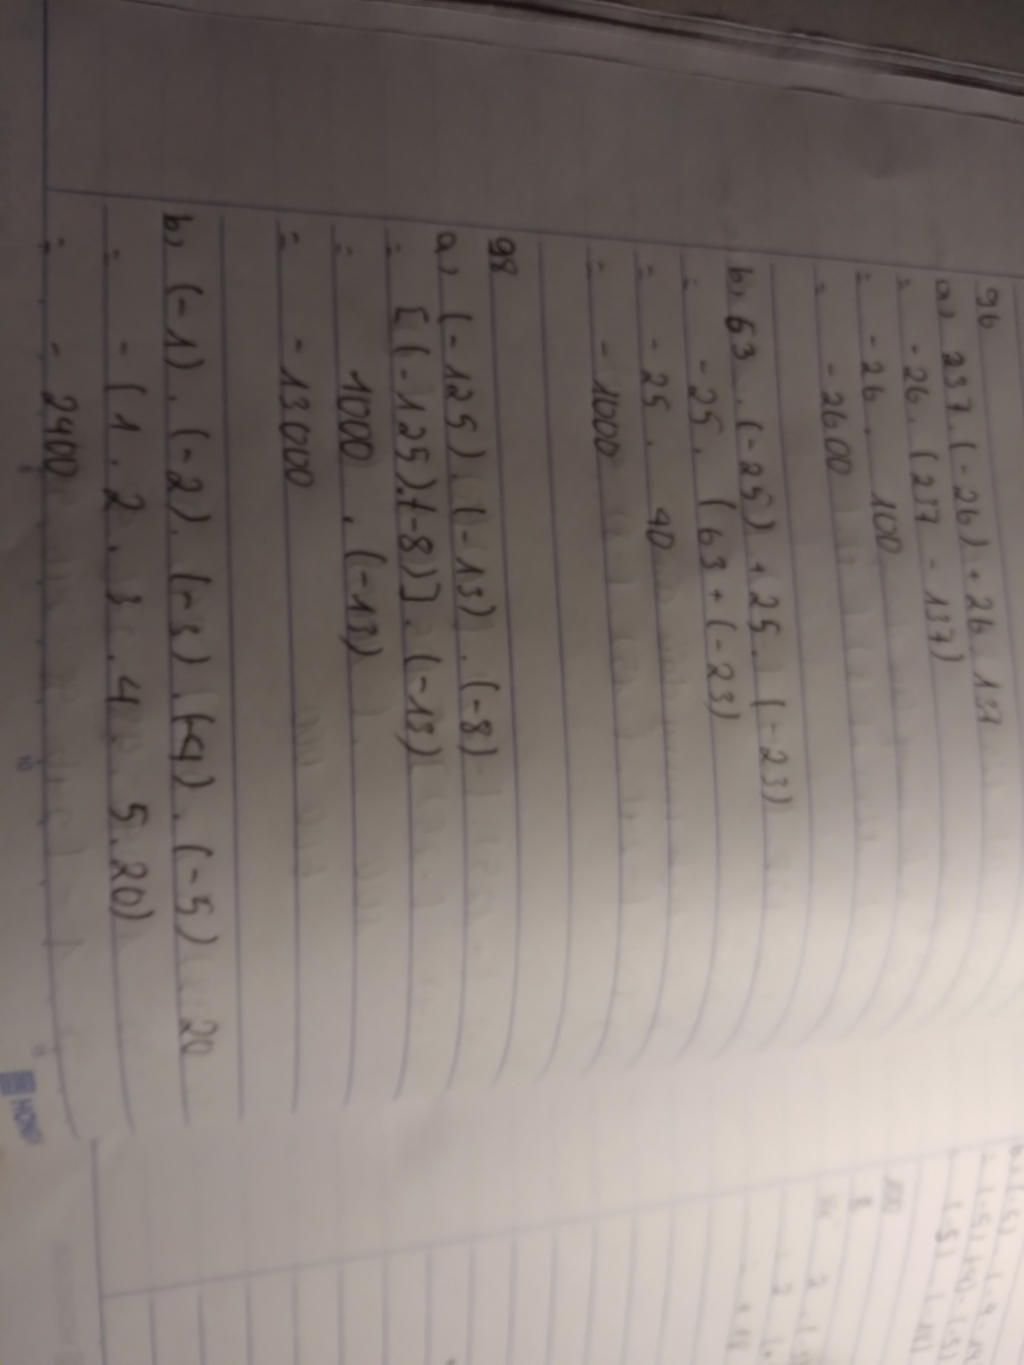 96
a, 237.(-26)+26.137
= -26.(237-137)
= -26.100
= -2600
b, 63.(-25)+25.(-23)
= -25.(63+(-23)
= -25.40
= -1000
98
a, (-125).(-13).(-8)
= [(-125).(-8)].(-13)
= 1000.(-13)
= -13000
b, (-1).(-2).(-3).(-4).(-5).20
= -(1.2.3.4.5.20)
= -2400
10
HONG